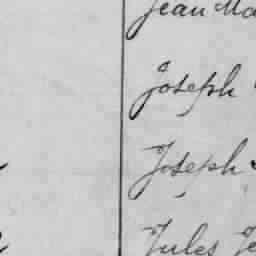 Jean Ma
Joseph
Joseph
Jules Je